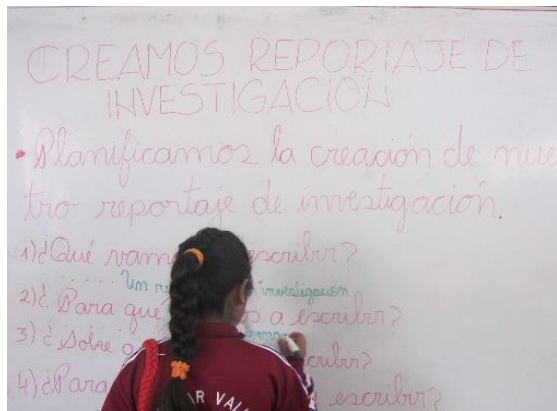 CREAMOS REPORTAJE DE
INVESTIGACIÓN
• Planificamos la creación de nue
tro reportaje de investigación.
1) ¿Qué escribir?
Un investigación
2) ¿Para qué a escribir?
3) ¿Sobre
4) ¿Para escribir?